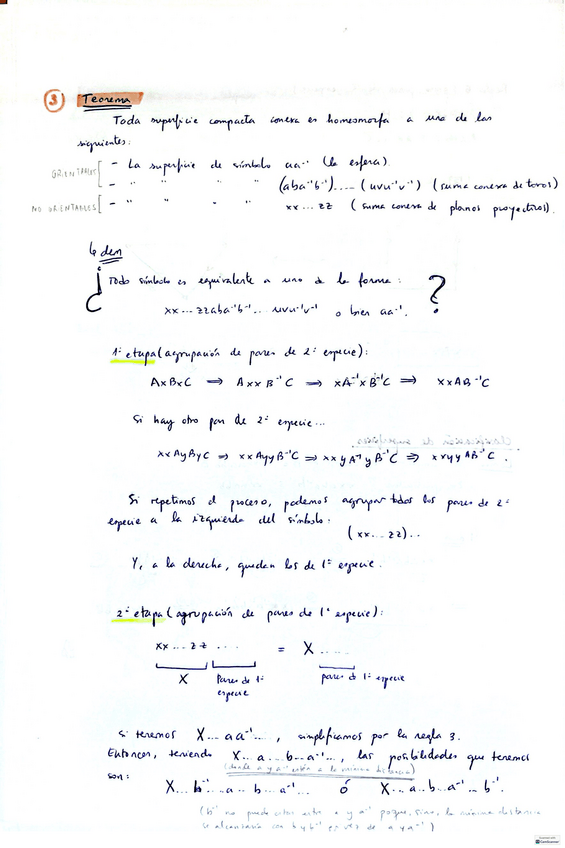 3 Teorema
Toda superficie compacta conexa es homeomorfa a una de las
siguientes:
ORIENTABLES - La superficie de símbolo aa⁻¹ (la esfera)
- " " " " (aba⁻¹b⁻¹)....(uvu⁻¹v⁻¹) (suma conexa de toros)
NO ORIENTABLES - " " " " xx...zz (suma conexa de planos proyectivos).
↳ dem
¿Todo símbolo es equivalente a uno de la forma:
xx...zzaba⁻¹b⁻¹...uvu⁻¹v⁻¹ o bien aa⁻¹. ?
1ª etapa (agrupación de pares de 2ª especie):
AxBxC ⇒ AxxB⁻¹C ⇒ xA⁻¹xB⁻¹C ⇒ xxAB⁻¹C
Si hay otro par de 2ª especie...
xxAyByC ⇒ xxAyyB⁻¹C ⇒ xxyA⁻¹yB⁻¹C ⇒ xxyyAB⁻¹C.
Si repetimos el proceso, podemos agrupar todos los pares de 2ª
especie a la izquierda del símbolo:
(xx...zz)..
Y, a la derecha, quedan los de 1ª especie.
2ª etapa (agrupación de pares de 1ª especie):
xx...zz .... = X .....
X Pares de 1ª especie pares de 1ª especie
Si tenemos X...aa⁻¹..., simplificamos por la regla 3.
Entonces, teniendo X...a...b...a⁻¹..., las posibilidades que tenemos
(donde a y a⁻¹ están a la mínima distancia)
son:
X...b⁻¹...a...b...a⁻¹... ó X...a..b..a⁻¹...b⁻¹.
(b⁻¹ no puede estar entre a y a⁻¹ porque, sino, la mínima distancia
se alcanzaría con b y b⁻¹ en vez de a y a⁻¹)